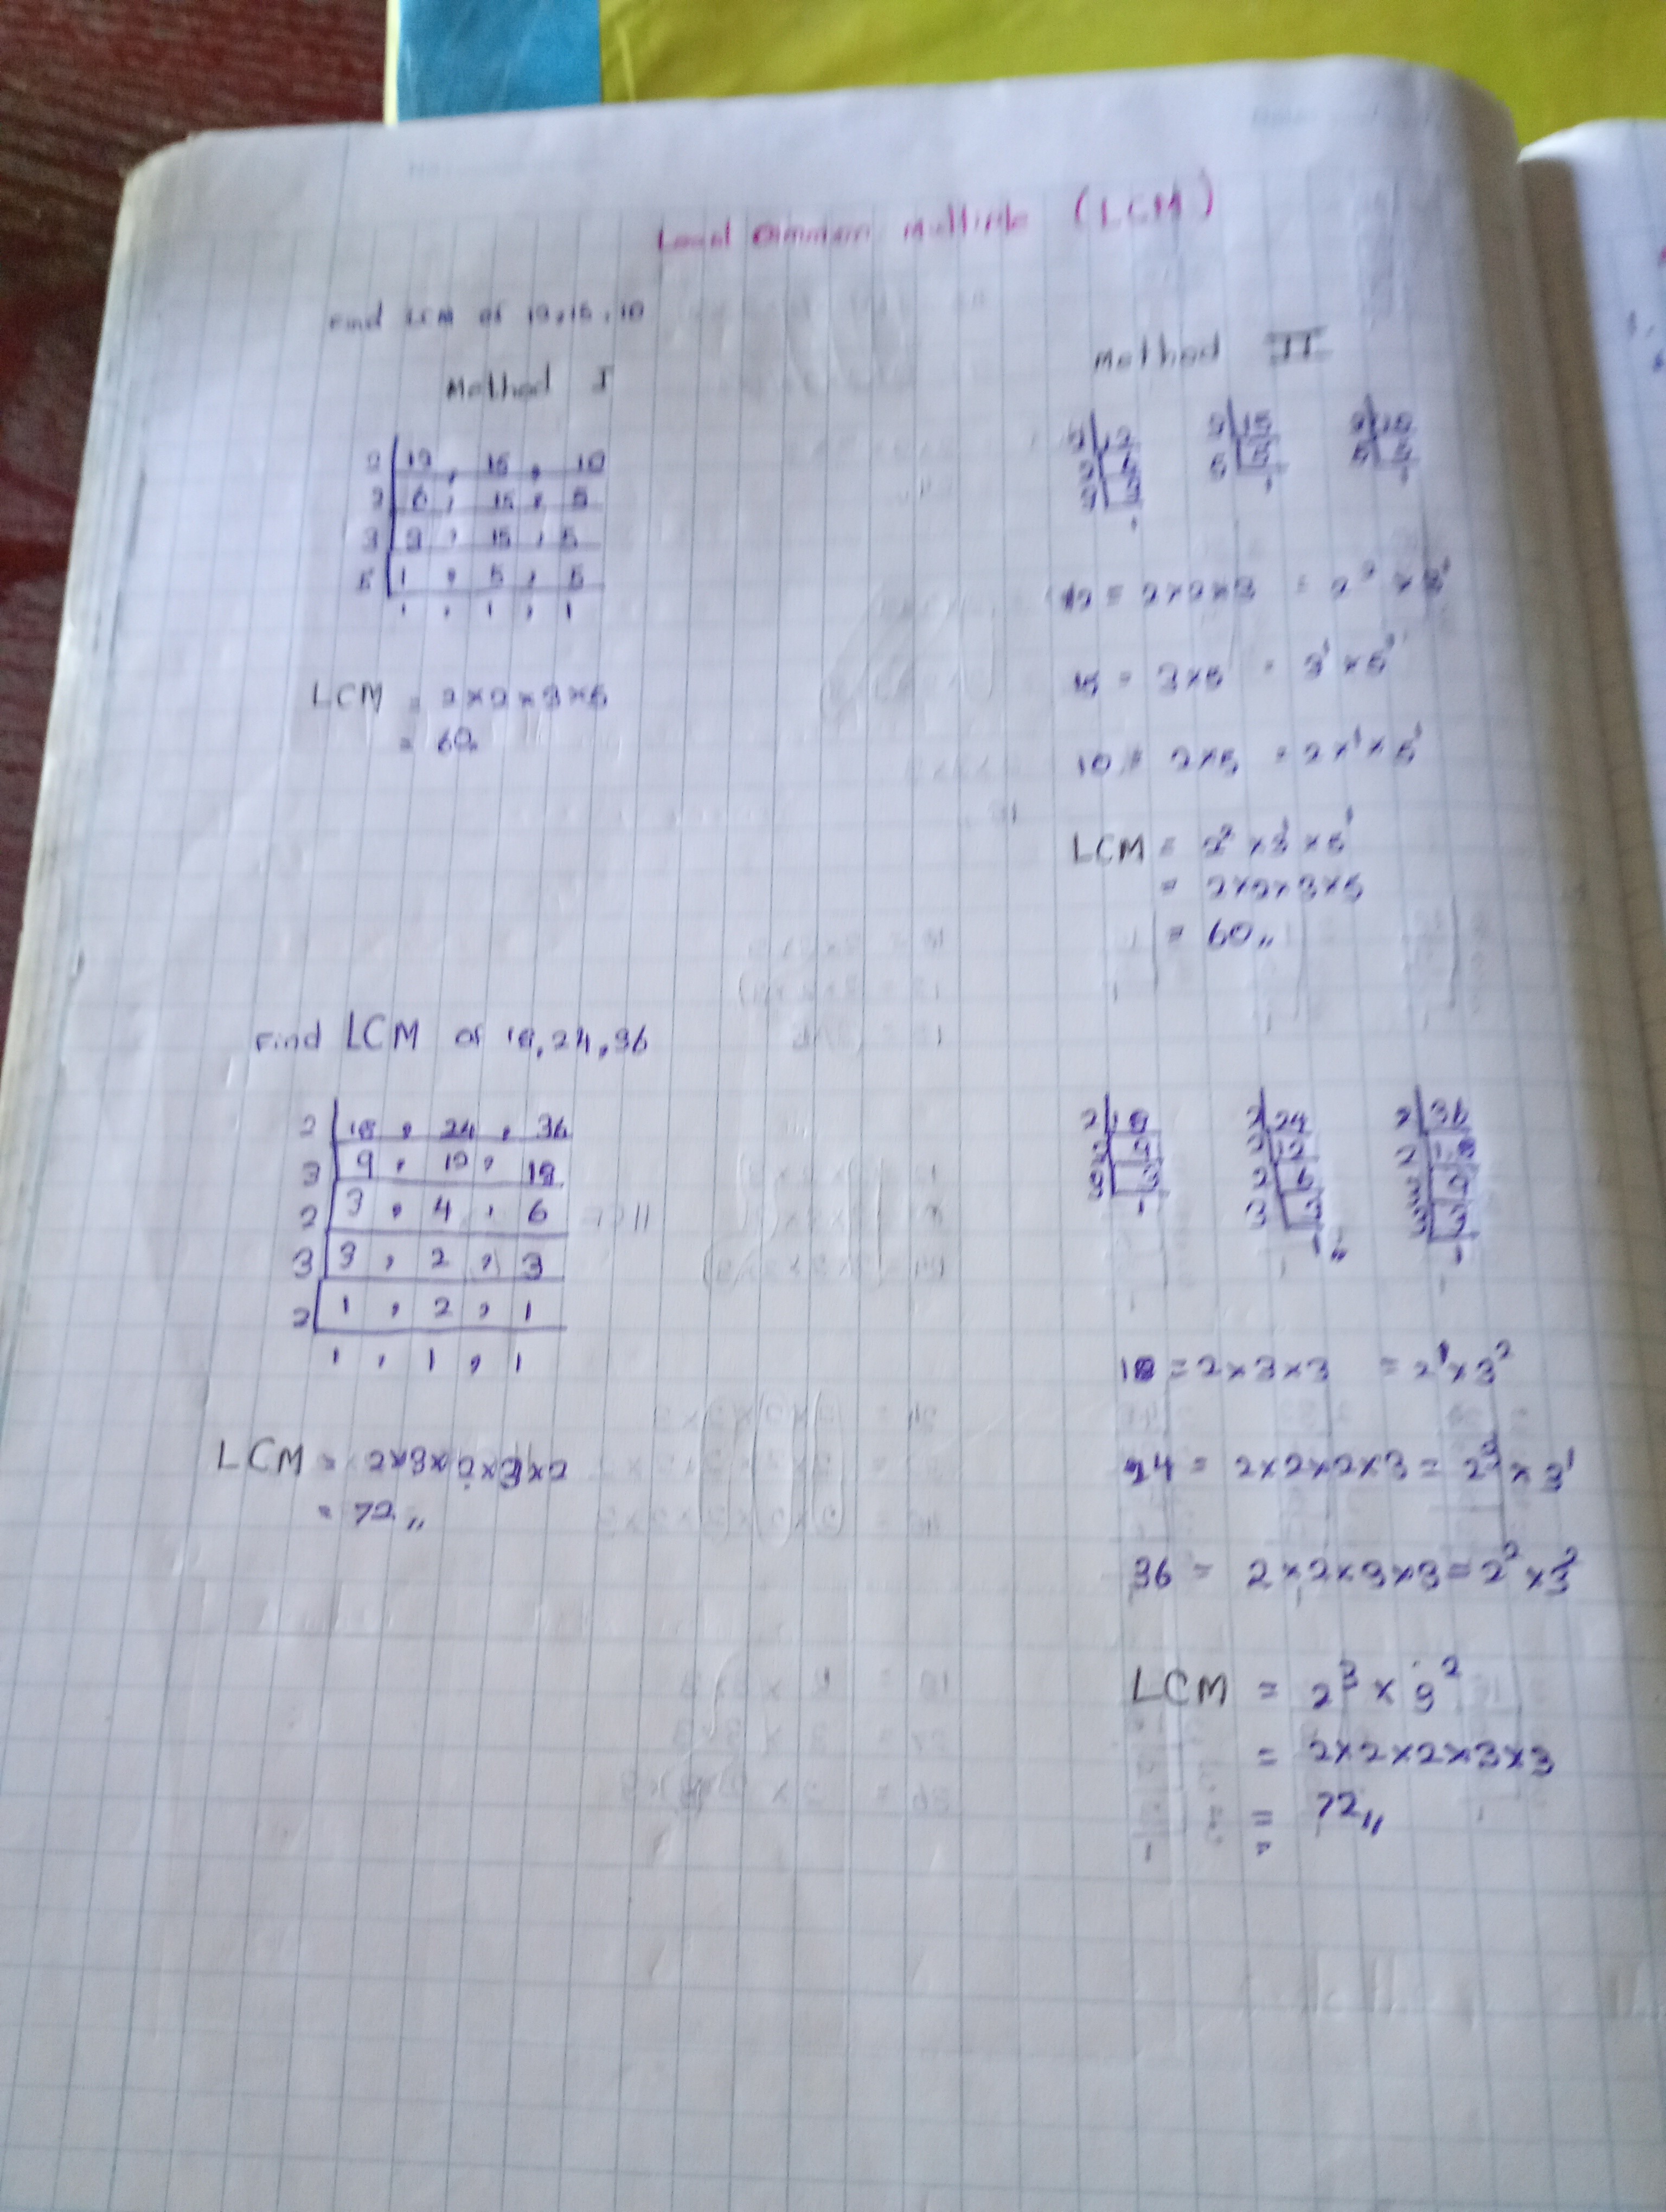 Least Common Multiple (LCM)
Find LCM of 12, 15, 10
Method I
2 | 12, 15, 10
2 | 6, 15, 5
3 | 3, 15, 5
5 | 1, 5, 5
1, 1, 1
LCM = 2×2×3×5
= 60
Method II
2 | 12
2 | 6
3 | 3
1
3 | 15
5 | 5
1
2 | 10
5 | 5
1
12 = 2×2×3 = 2² × 3¹
15 = 3×5 = 3¹ × 5¹
10 = 2×5 = 2×¹ × 5¹
LCM = 2² × 3¹ × 5¹
= 2×2×3×5
= 60,,
Find LCM of 18, 24, 36
2 | 18, 24, 36
3 | 9, 12, 18
2 | 3, 4, 6
3 | 3, 2, 3
2 | 1, 2, 1
1, 1, 1
LCM = 2×3×2×3×2
= 72,,
2 | 18
3 | 9
3 | 3
1
2 | 24
2 | 12
2 | 6
3 | 3
1,,
2 | 36
2 | 18
3 | 9
3 | 3
1
18 = 2×3×3 = 2¹ × 3²
24 = 2×2×2×3 = 2³ × 3¹
36 = 2×2×3×3 = 2² × 3²
LCM = 2³ × 3²
= 2×2×2×3×3
= 72,,